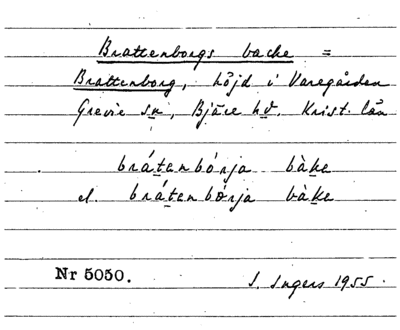 Brattenborgs backe =
Brattenborg, höjd i Varegården
Grevie sn, Bjäre hd. Krist. län
brátanbórja bàke
el. brátanbørja bàke
Nr 5050.
I. Ingers 1955.